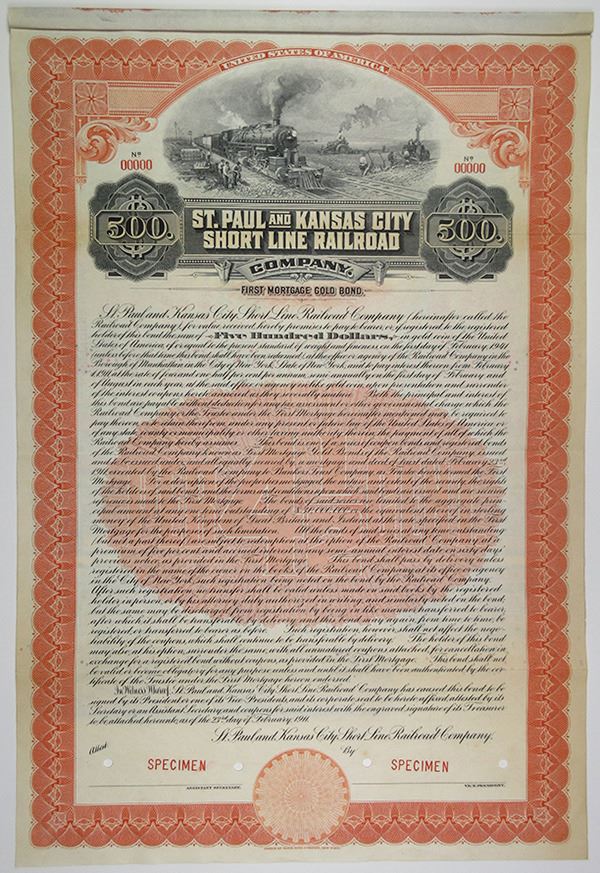 UNITED STATES OF AMERICA.
Nº
00000
Nº
00000
500.
500.
ST. PAUL AND KANSAS CITY
SHORT LINE RAILROAD
COMPANY.
FIRST MORTGAGE GOLD BOND.
St. Paul and Kansas City Short Line Railroad Company (hereinafter called the
Railroad Company), for value received, hereby promises to pay to bearer, or, if registered, to the registered
holder of this bond, the sum of Five Hundred Dollars, in gold coin of the United
States of America, of or equal to the present standard of weight and fineness, on the first day of February, 1941,
(unless before that time this bond shall have been redeemed), at the office or agency of the Railroad Company in the
Borough of Manhattan in the City of New York, State of New York, and to pay interest thereon from February
and of August in each year, at the said office or agency, in like gold coin,
of the interest coupons hereto annexed as they severally mature. Both the principal and interest of
Railroad Company or the Trustee under the First Mortgage hereinafter mentioned may be required to
pay thereon or to retain therefrom under any present or future law of the United States of America or
of any state, county or municipality or other taxing authority therein, the payment of all of which the
Railroad Company hereby assumes. This bond is one of a series of coupon bonds and registered bonds
of the Railroad Company known as First Mortgage Gold Bonds of the Railroad Company, issued
and to be issued under, and all equally secured by, a mortgage and deed of trust dated February 23rd
1911, executed by the Railroad Company to Bankers Trust Company as Trustee, herein termed the First
Mortgage. For a description of the property mortgaged, the nature and extent of the security, the rights
of the holders of said bonds, and the terms and conditions upon which said bonds are issued and are secured
reference is made to the First Mortgage.
money of the United Kingdom of Great Britain and Ireland at the rate specified in the First
Mortgage for the purposes of such limitation. All the bonds of said series at any time outstanding
(but not a part thereof) are subject to redemption at the option of the Railroad Company, at
premium of five per cent. and accrued interest on any semi-annual interest date on sixty days'
previous notice, as provided in the First Mortgage. This bond shall pass by delivery unless
registered in the name of the owner on the books of the Railroad Company at its office or agency
in the City of New York, such registration being noted on the bond by the Railroad Company.
After such registration, no transfer shall be valid unless made on such books by the registered
holder in person, or by his attorney duly authorized in writing, and similarly noted on the bond,
but the same may be discharged from registration by being in like manner transferred to bearer,
after which it shall be transferable by delivery; and it may again, from time to time, be
registered, or transferred to bearer as before. Such registration, however, shall not affect the nego-
tiability of the coupons, which shall continue to be transferable by delivery. The holder of this bond
may also, at his option, surrender the same, with all unmatured coupons attached, for cancellation, in
exchange for a registered bond without coupons, as provided in the First Mortgage. This bond shall not
be valid or become obligatory for any purpose unless and until it shall have been authenticated by the cer-
tificate of the Trustee under the First Mortgage hereon endorsed.
In Witness Whereof, St. Paul and Kansas City Short Line Railroad Company has caused this bond to be
signed by its President or one of its Vice-Presidents, and its corporate seal to be hereto affixed, attested by its
Secretary or an Assistant Secretary, and coupons for said interest with the engraved signature of its Treasurer
to be attached hereto, as of the 23rd day of February, 1911.
St. Paul and Kansas City Short Line Railroad Company,
Attest:
By
SPECIMEN
SPECIMEN
ASSISTANT SECRETARY.
VICE PRESIDENT.